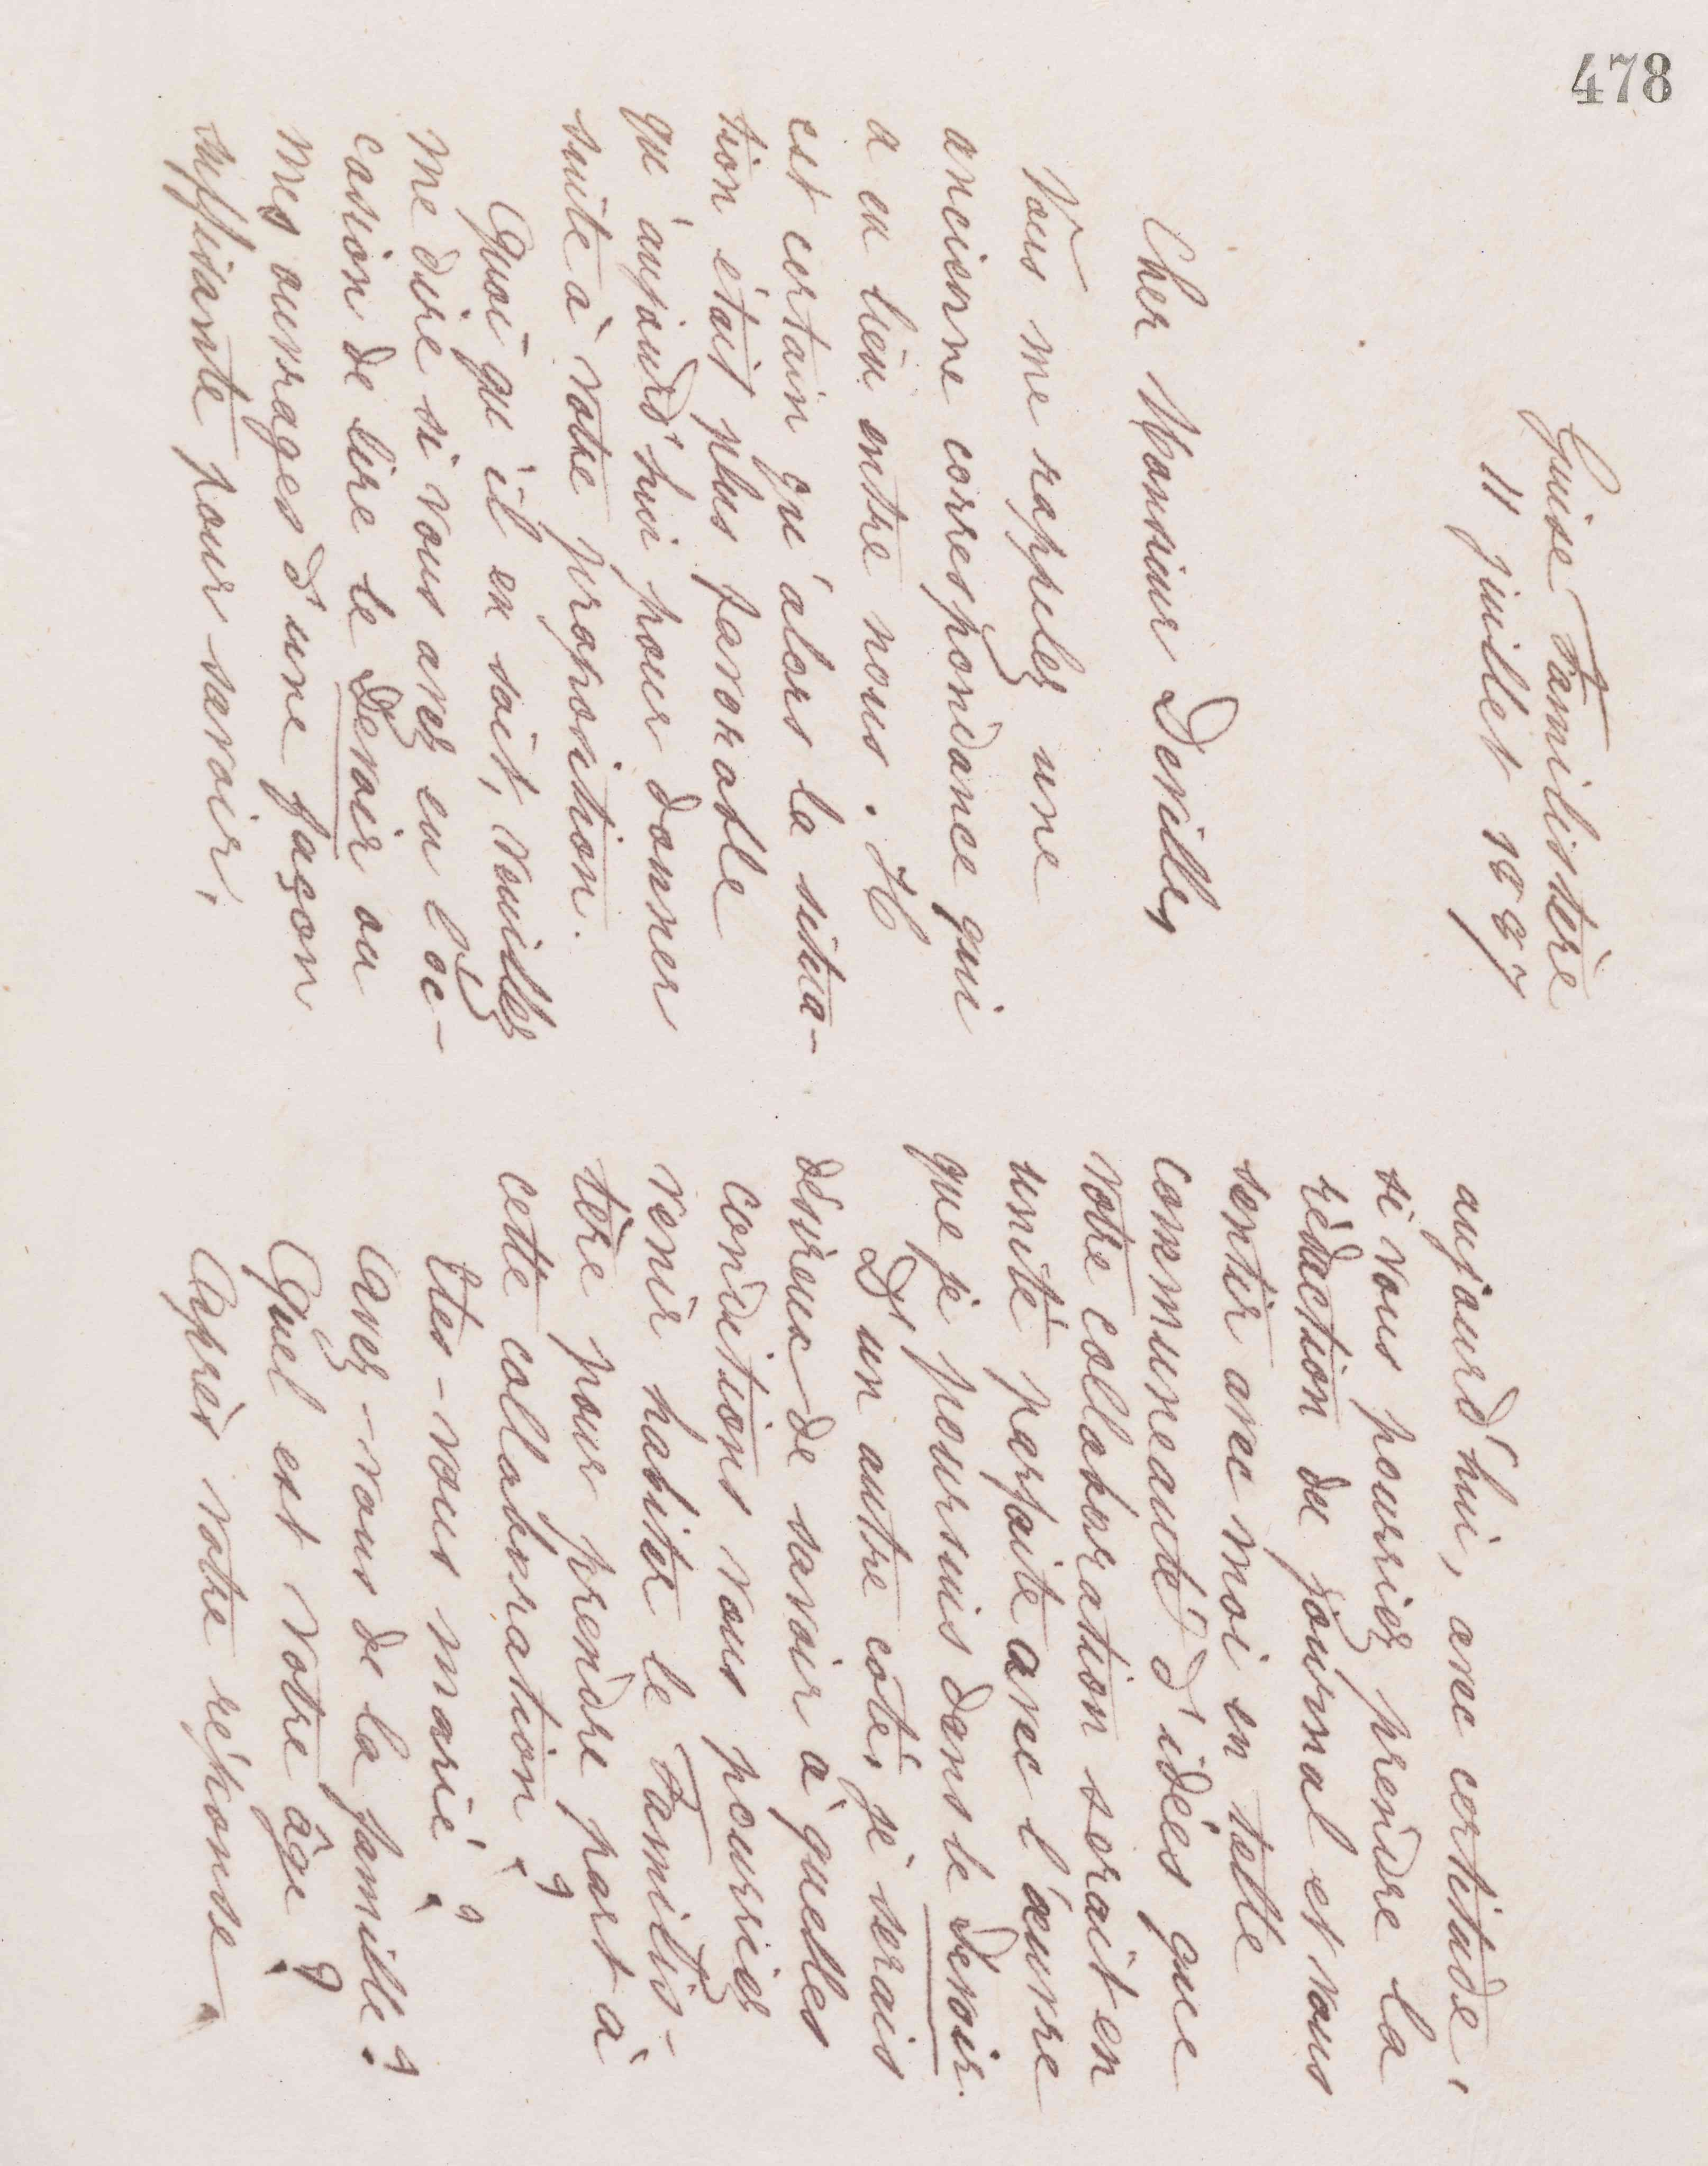 478
Guise Familistère
11 juillet 1887
Cher Monsieur Deville,
Vous me rappelez une
ancienne correspondance qui
a eu lieu entre nous. Il
est certain qu'alors la situa-
tion était plus favorable
qu'aujourd'hui pour donner
suite à votre proposition.
Quoi qu'il en soit, veuillez
me dire si vous avez eu l'oc-
casion de lire le Devoir ou
mes ouvrages d'une façon
suffisante pour savoir,
aujourd'hui, avec certitude,
si vous pourriez prendre la
rédaction du journal et vous
sentir avec moi en telle
communeauté d'idées que
votre collaboration serait en
unité parfaite avec l'œuvre
que je poursuis dans le Devoir.
D'un autre côté, je serais
désireux de savoir à quelles
conditions vous pourriez
venir habiter le Familis-
tère pour prendre part à
cette collaboration ?
Etes-vous marié ?
Avez-vous de la famille ?
Quel est votre âge ?
Après votre réponse,